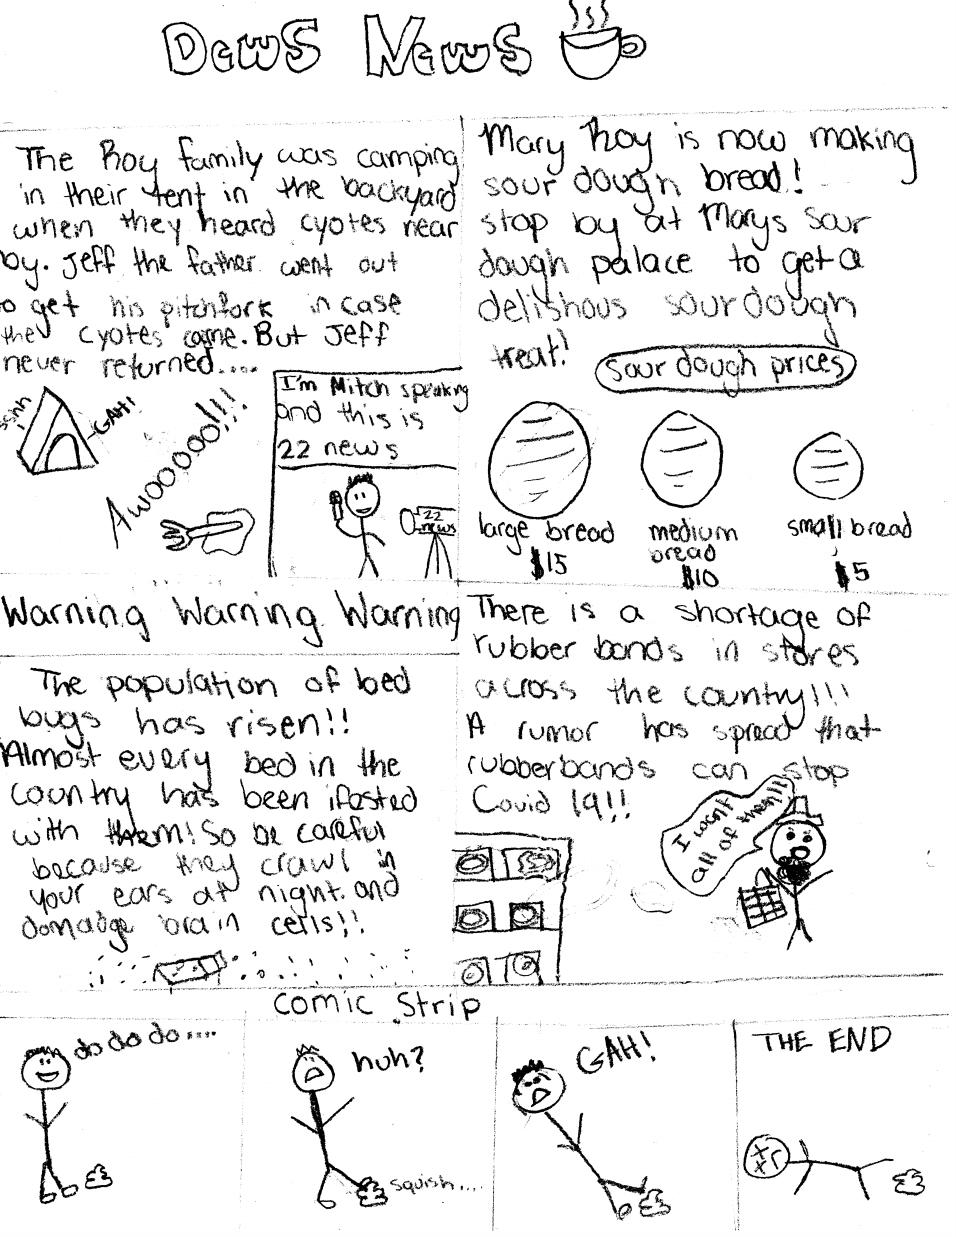 Dews News
The Roy family was camping
in their tent in the backyard
when they heard cyotes near
by. Jeff the father went out
to get his pitchfork in case
the cyotes came. But Jeff
never returned....
sshh
GAH!
Awoooooo!!!
I'm Mitch speaking
and this is
22 news
22
news
Mary Roy is now making
sour dough bread!
stop by at Marys sour
dough palace to get a
delishous sour dough
treat!
sour dough prices
large bread
$15
medium
bread
$10
small bread
$5
Warning Warning Warning
The population of bed
bugs has risen!!
Almost every bed in the
country has been ifested
with them! So be careful
because they crawl in
your ears at night. and
domadge brain cells!!
There is a shortage of
rubber bands in stores
across the country!!!
A rumor has spread that
rubberbands can stop
Covid 19!!
I want
all of them!!!
Comic Strip
do do do....
huh?
squish....
GAH!
THE END